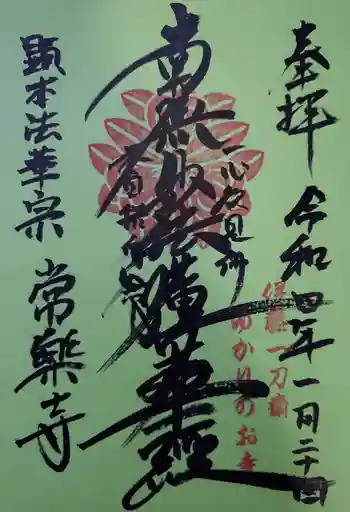 奉拝
令和四年一月二十
伊藤一刀斎
ゆかりのお寺
一心欲見佛
南無妙法蓮華經
不自惜身命
顕本法華宗
常樂寺